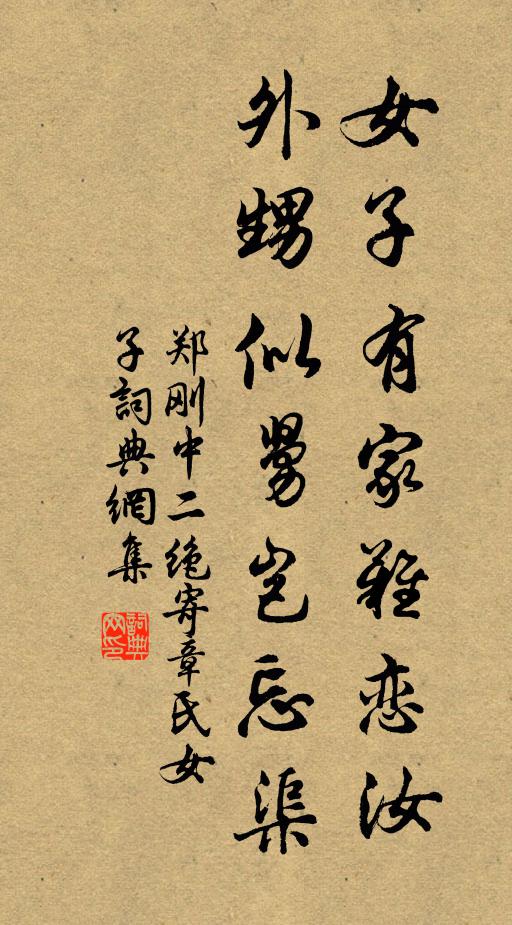 女子有家难恋汝
外甥似舅岂忘渠
郑刚中二绝寄章氏女
子詞典網集
詞典網印